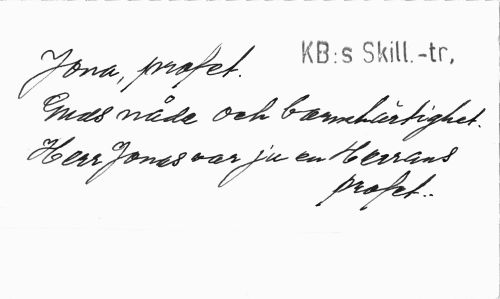 Jona, profet.
KB:s Skill.-tr,
Guds nåde och barmhärtighet.
Herr Jonas var ju en Herrans
profet..